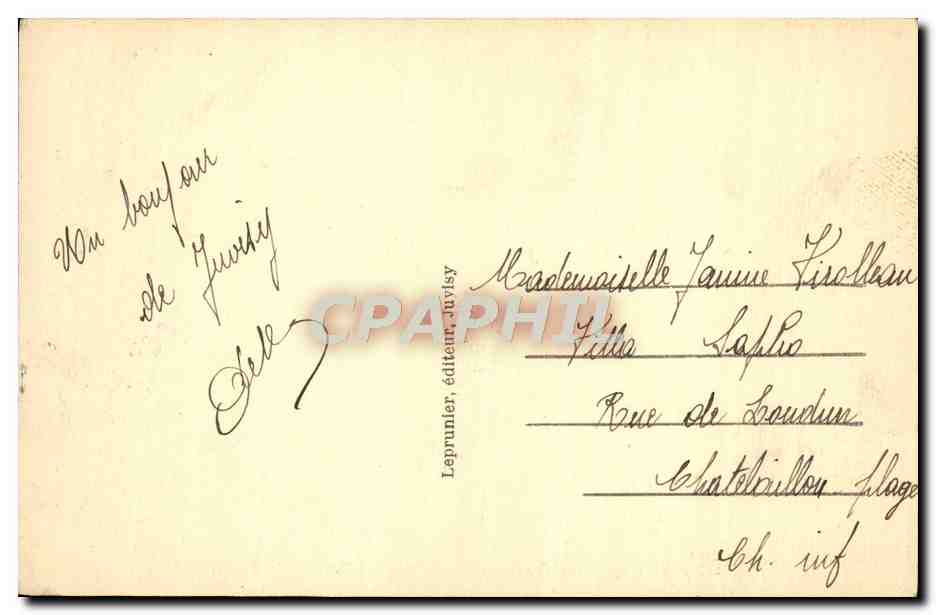 Un bonjour
de Juvisy
Leprunier, éditeur, Juvisy
CPAPHIL
Mademoiselle Janine Virolleau
Villa Sapho
Rue de Loudun
Chatelaillon-plage
Ch. inf